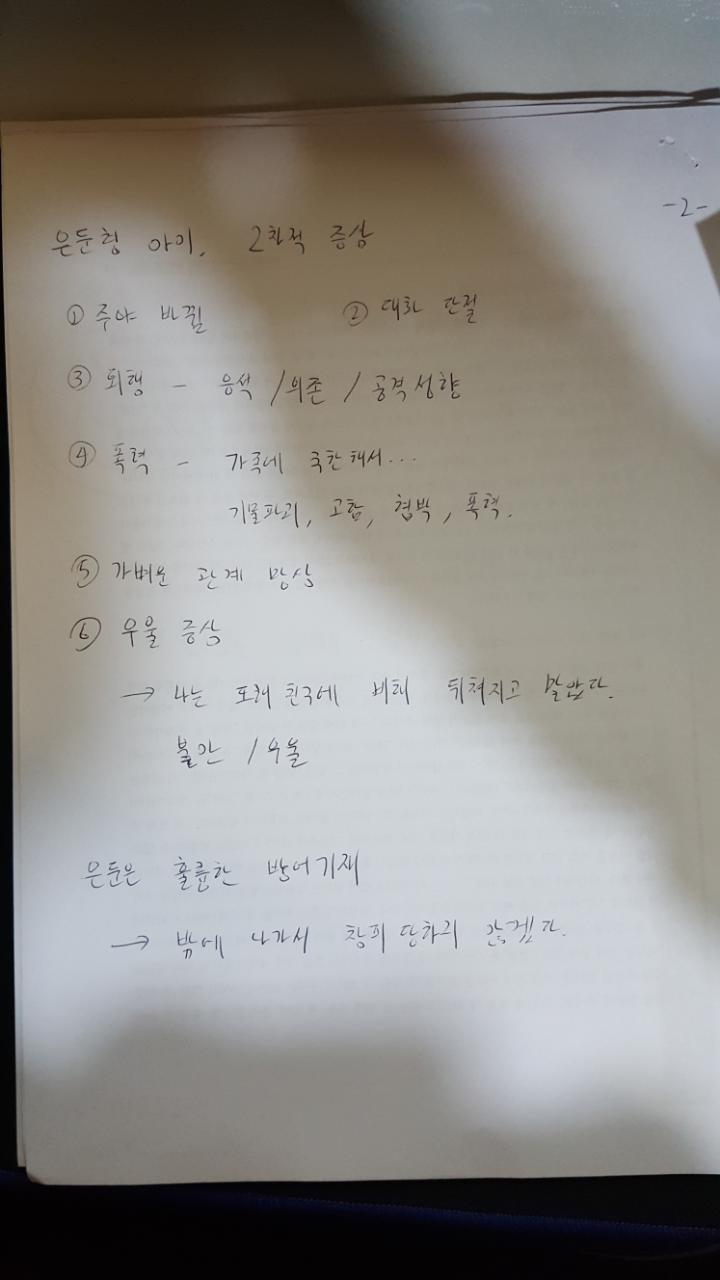 -2-
은둔형 아이, 2차적 증상
① 주야 바뀜 ② 대화 단절
③ 퇴행 - 응석 / 의존 / 공격성향
④ 폭력 - 가족에 국한해서...
기물파괴, 고함, 협박, 폭력.
⑤ 가벼운 관계 망상
⑥ 우울 증상
→ 나는 또래 친구에 비해 뒤쳐지고 말았다.
불안 / 우울
은둔은 훌륭한 방어기재
→ 밖에 나가서 창피 당하지 않겠다.